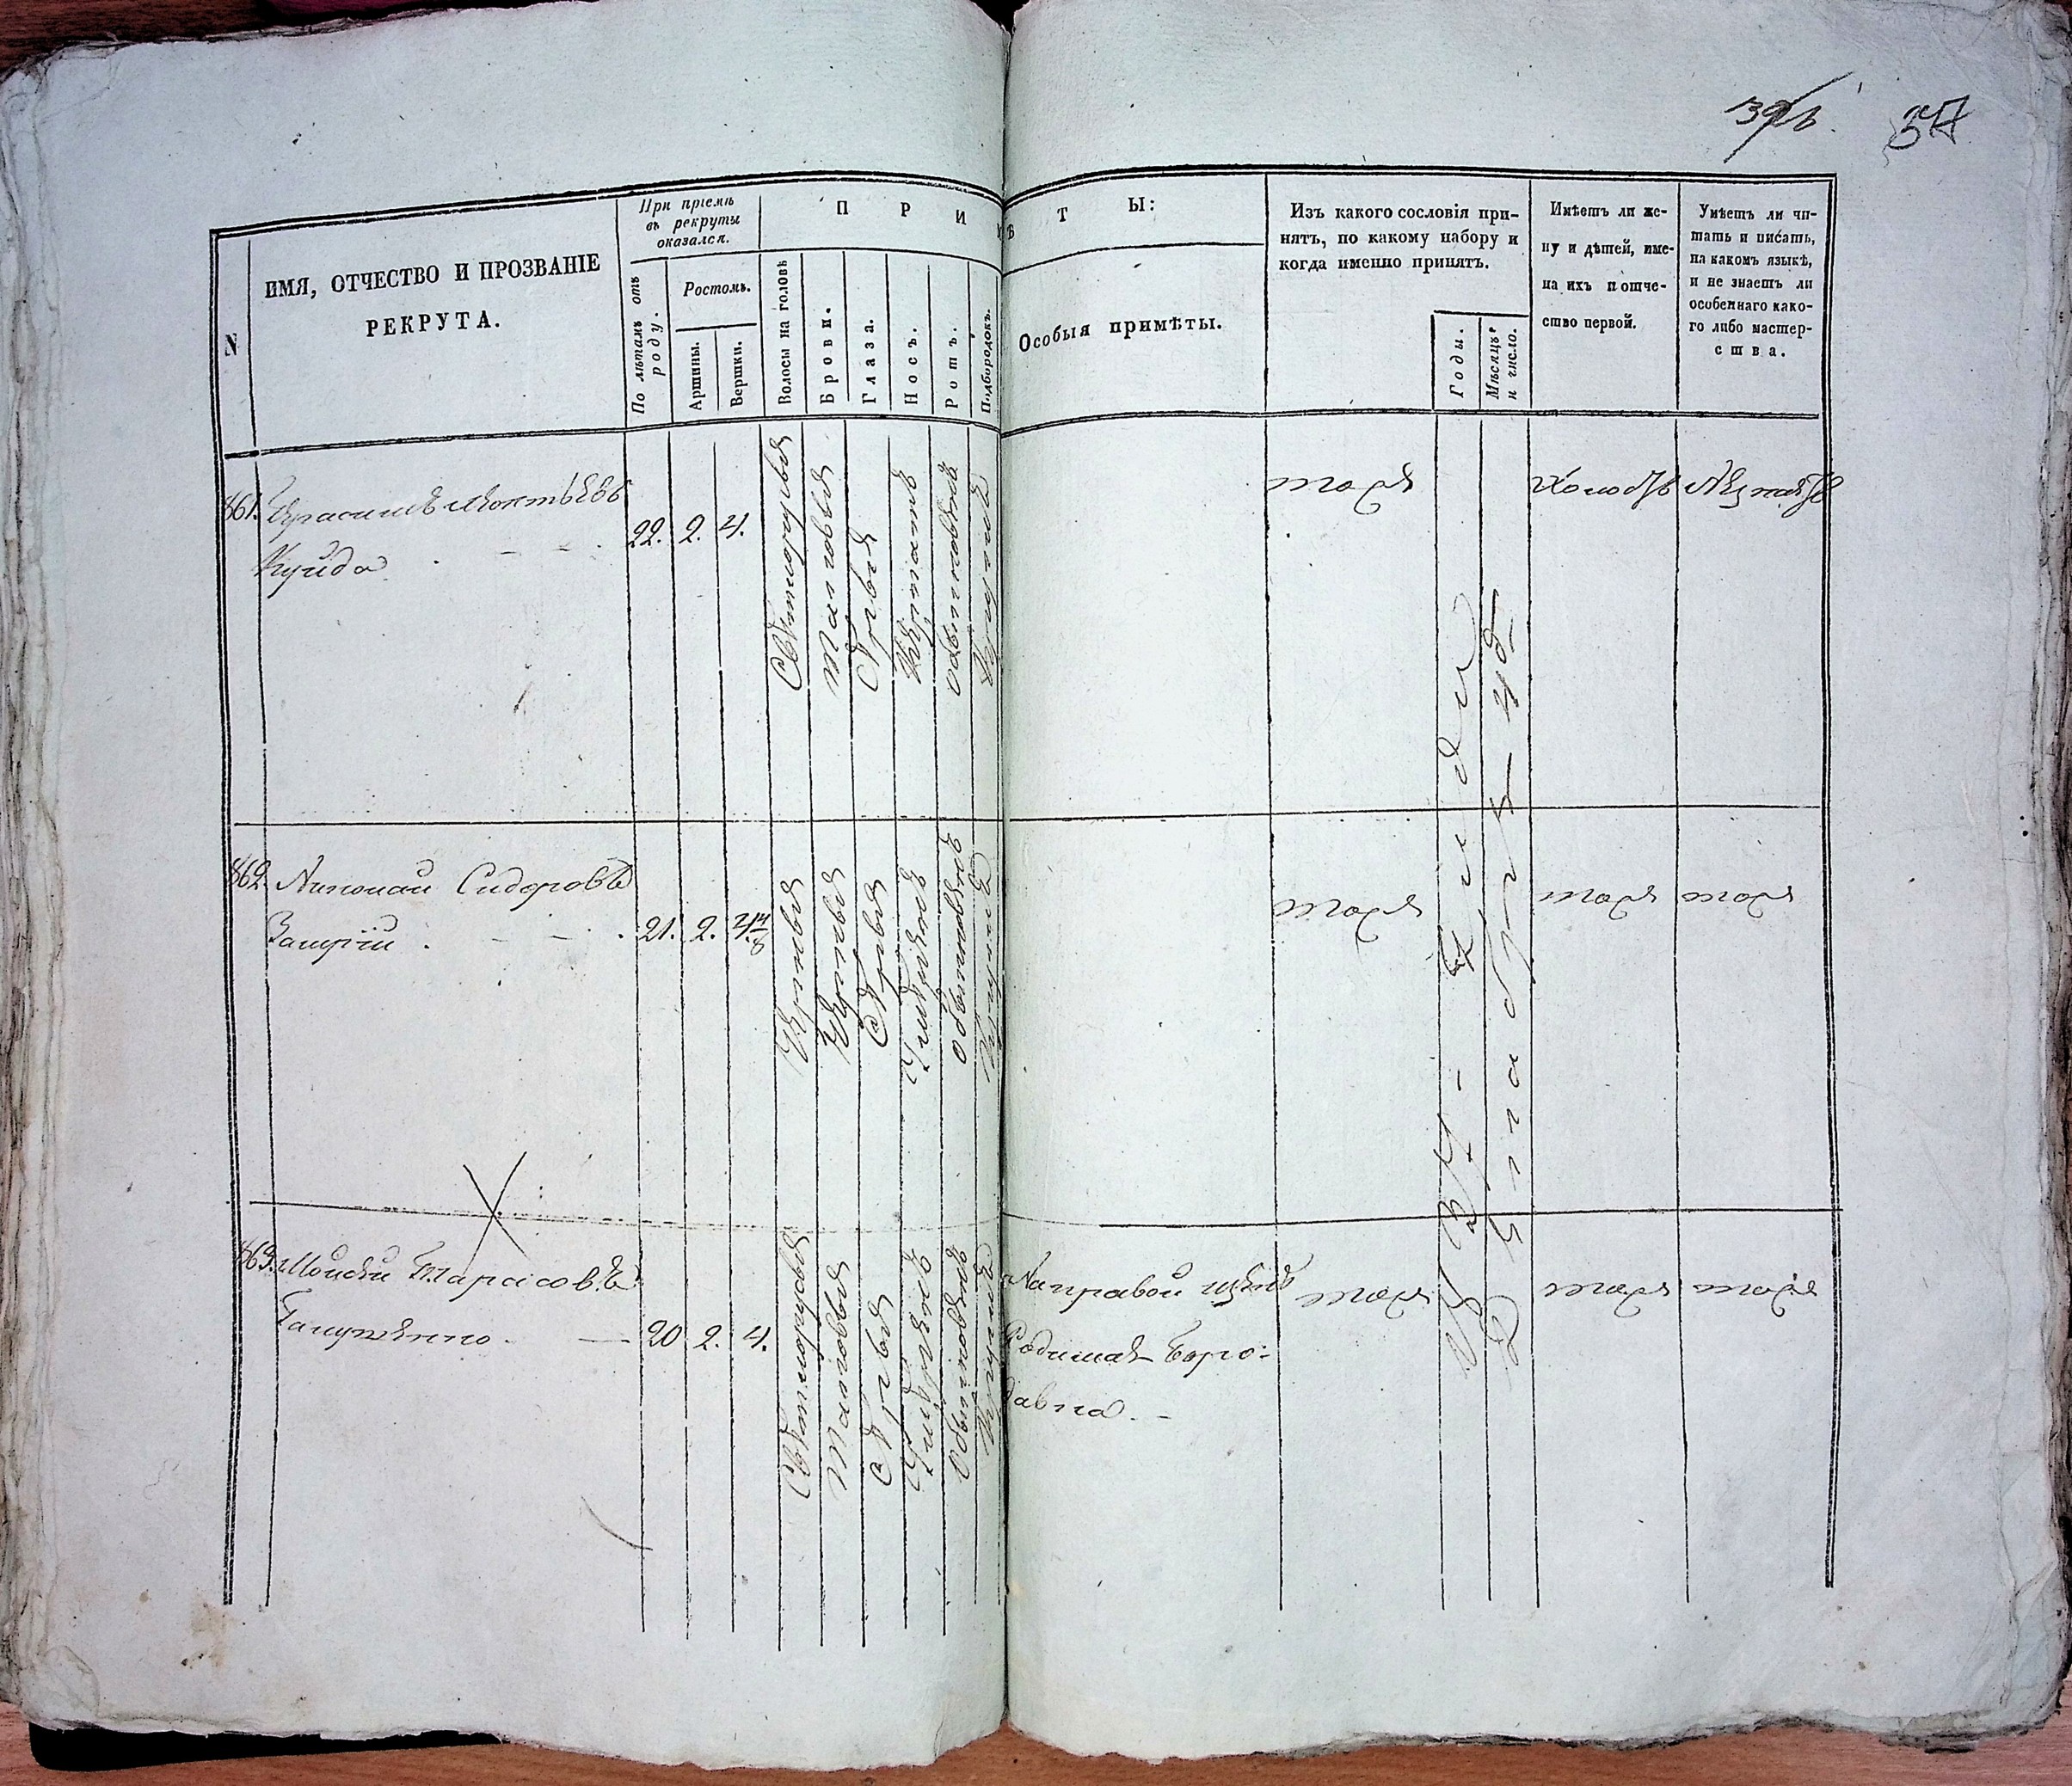 37
N
ИМЯ, ОТЧЕСТВО И ПРОЗВАНІЕ
РЕКРУТА.
При пріемѣ
въ рекруты
оказался.
По лѣтамъ отъ
роду.
Ростомъ.
Аршины.
Вершки.
П Р И М Ѣ Т Ы:
Волосы на головѣ
Брови.
Глаза.
Носъ.
Ротъ.
Подбородокъ.
Особыя примѣты.
Изъ какого сословія при-
нятъ, по какому набору и
когда именно принятъ.
Годы.
Мѣсяцъ
и число.
Имѣетъ ли же-
ну и дѣтей, име-
на ихъ и отче-
ство первой.
Умѣетъ ли чи-
тать и писать,
на какомъ языкѣ,
и не знаетъ ли
особеннаго како-
го либо мастер-
ства.
861. Герасимъ Леонтьевъ
Куйда
22. 2. 4.
Свѣтлорусыя
Сѣрыя
обыкновенной
Круглой
тоже
Холостъ
Незнаетъ
862. Николай Сидоровъ
21. 2. 4 4/8
Черныя
Черныя
Сѣрыя
обыкновенной
Круглой
тоже
тоже
тоже
863. Моисей Тарасовъ
Галушенко
20 2. 4.
Свѣтлорусыя
Сѣрыя
Обыкновенной
Круглой
На правой щекѣ
Родимая Боро-
давка.
тоже
тоже
тоже